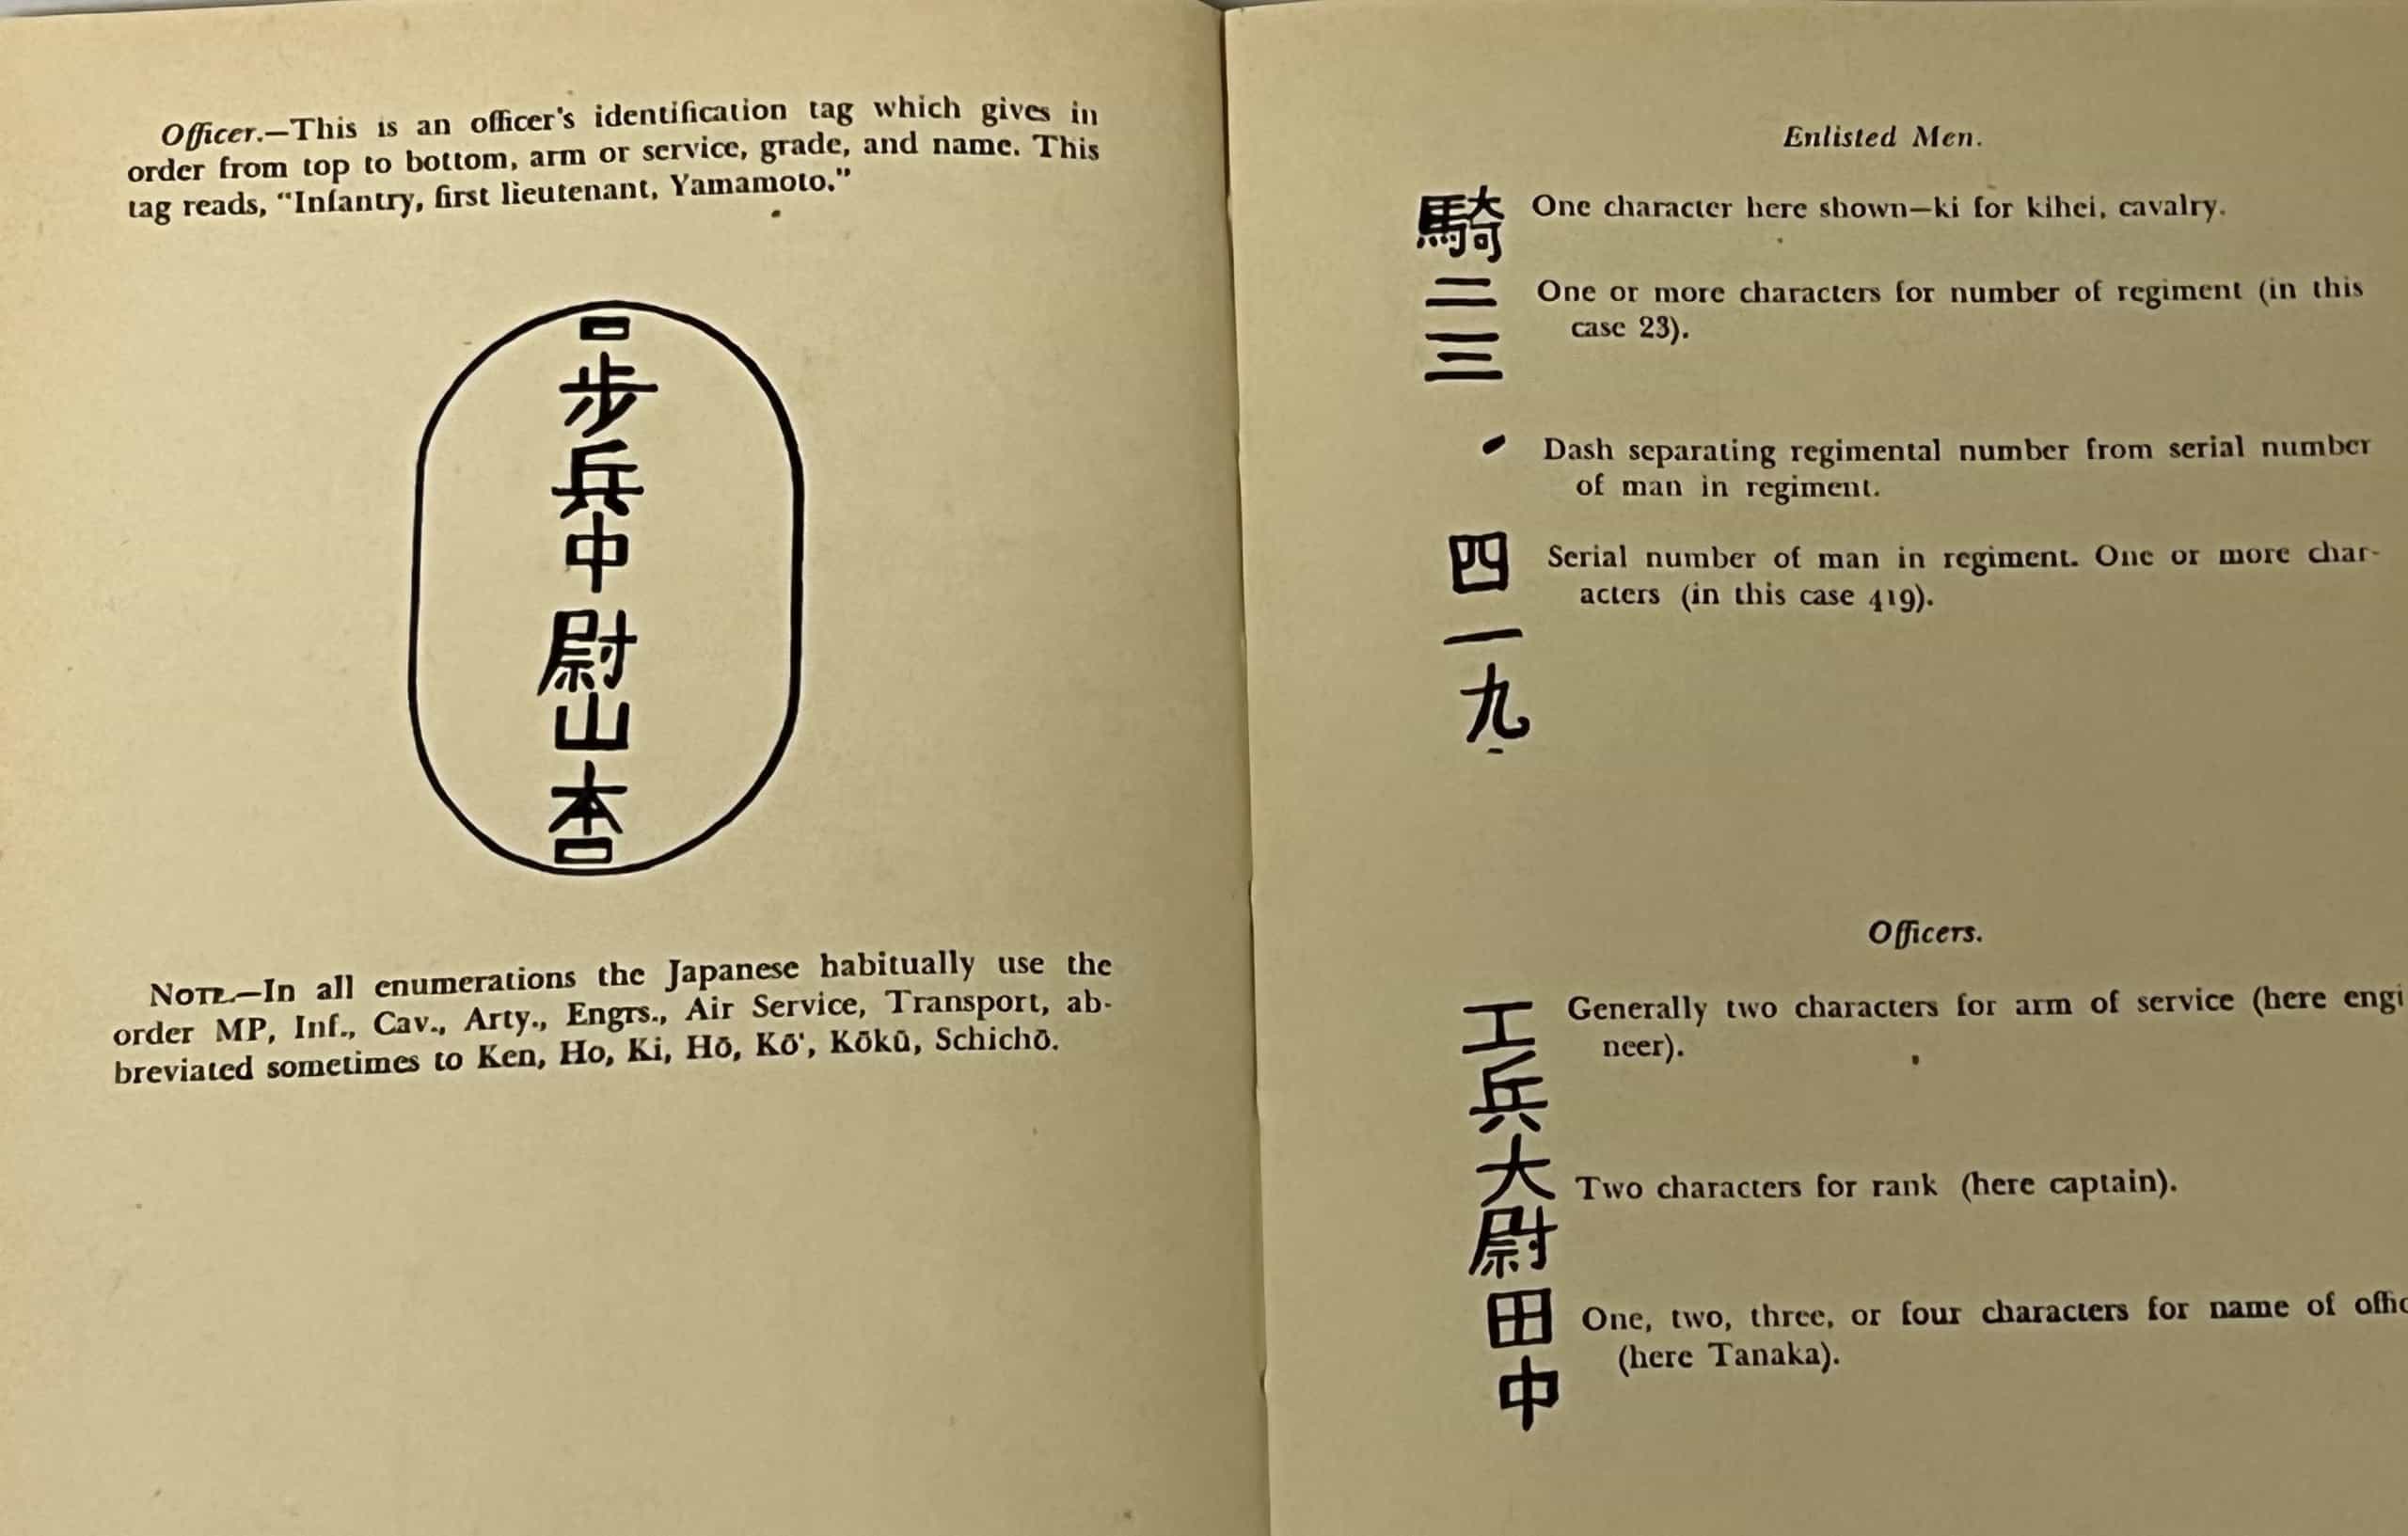 Officer.—This is an officer's identification tag which gives in
order from top to bottom, arm or service, grade, and name. This
tag reads, "Infantry, first lieutenant, Yamamoto."
歩
兵
中
尉
山
本
NOTE.—In all enumerations the Japanese habitually use the
order MP, Inf., Cav., Arty., Engrs., Air Service, Transport, ab-
breviated sometimes to Ken, Ho, Ki, Hō, Kō', Kōkū, Schichō.
Enlisted Men.
騎 One character here shown—ki for kihei, cavalry.
二 One or more characters for number of regiment (in this
三 case 23).
Dash separating regimental number from serial number
of man in regiment.
四 Serial number of man in regiment. One or more char-
acters (in this case 419).
一
九
Officers.
工 Generally two characters for arm of service (here engi
neer).
兵
大 Two characters for rank (here captain).
尉
田 One, two, three, or four characters for name of offic
(here Tanaka).
中